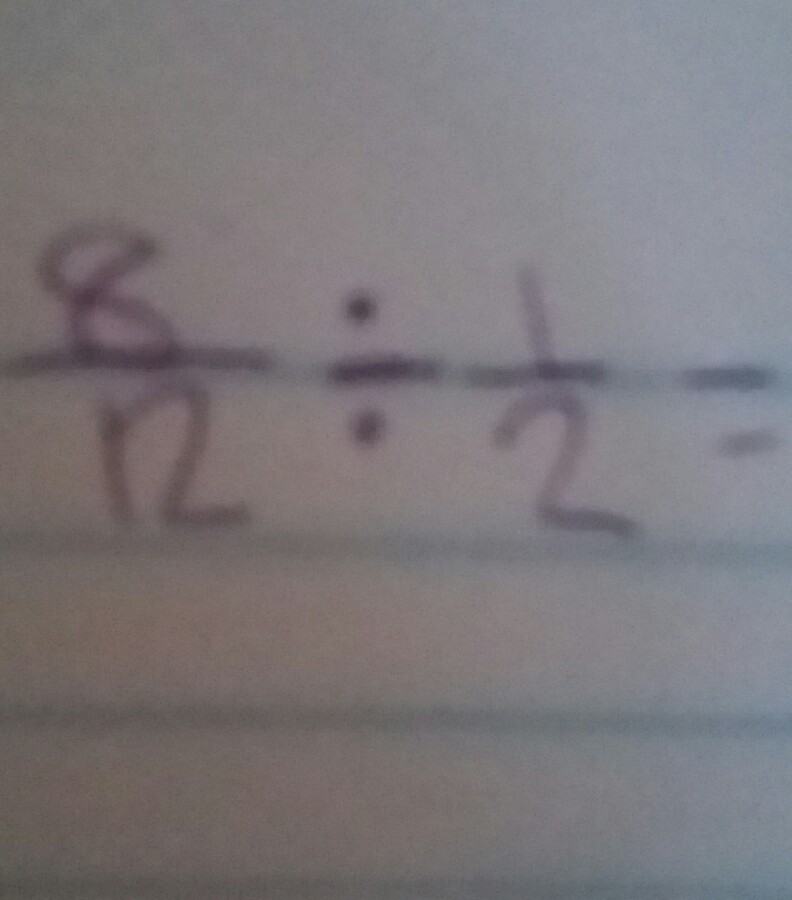 8/12 ÷ 1/2 =